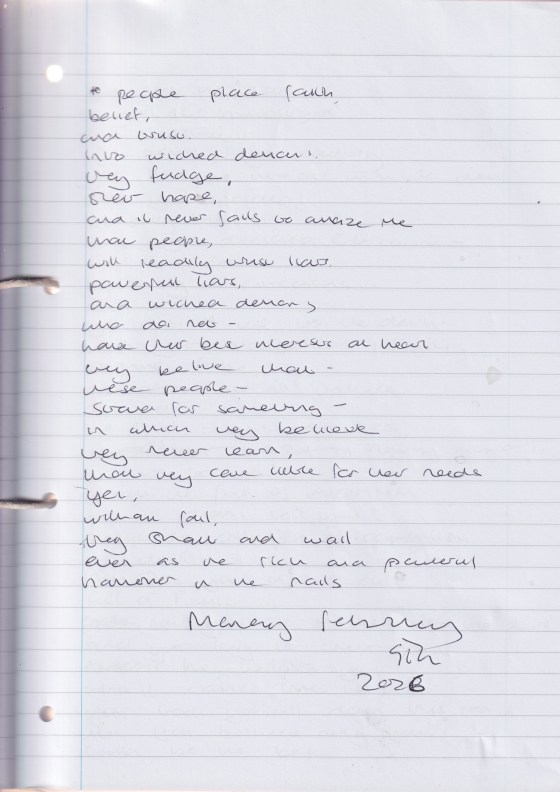 * people place faith,
belief,
and trust.
into wicked demons.
they fudge,
their hope,
and it never fails to amaze me
that people,
will readily trust liars.
powerful liars,
and wicked demons
who do not -
have their best interests at heart
they belive that -
these people -
stand for something -
in which they believe
they never learn,
that they care little for their needs
yet,
without fail,
they and wail
even as the rich and powerful
hammer in the nails
Monday February
9th
2026